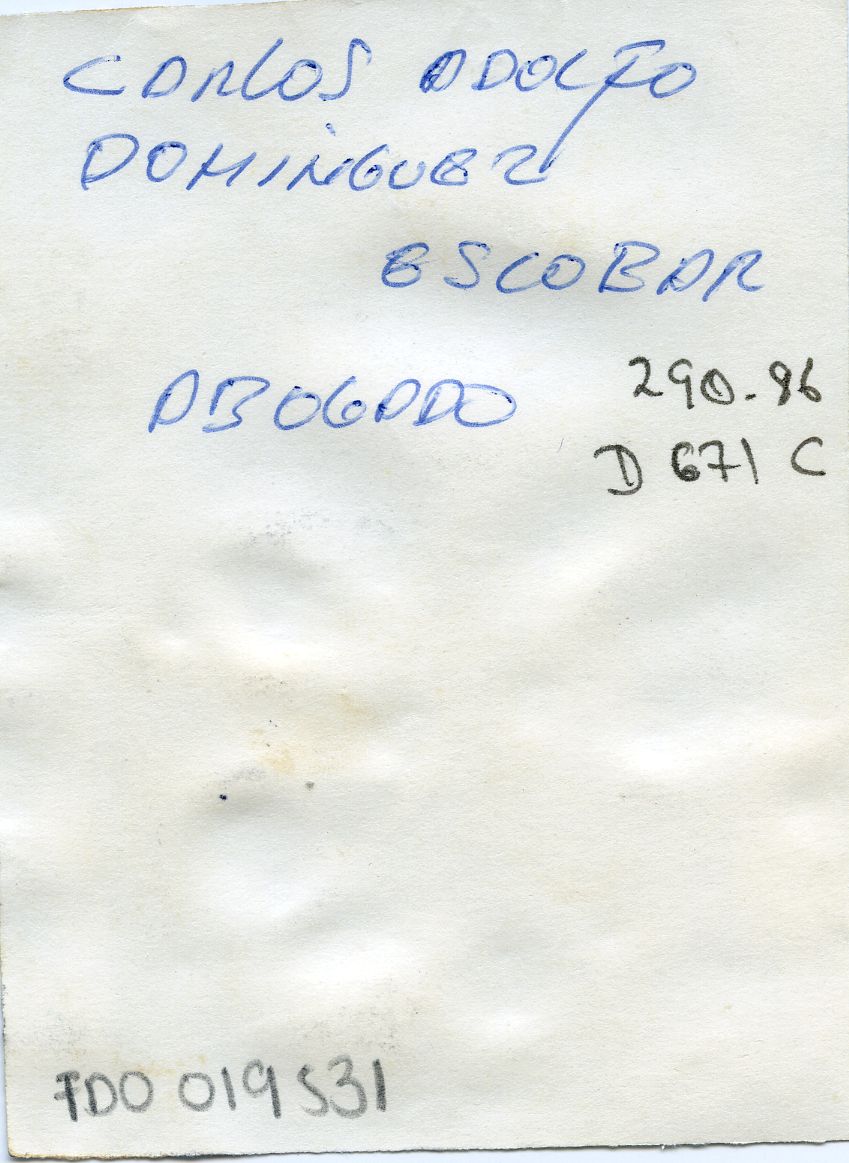 CARLOS ADOLFO
DOMINGUEZ
ESCOBAR
ABOGADO
290-86
D 671 C
FDO 019531